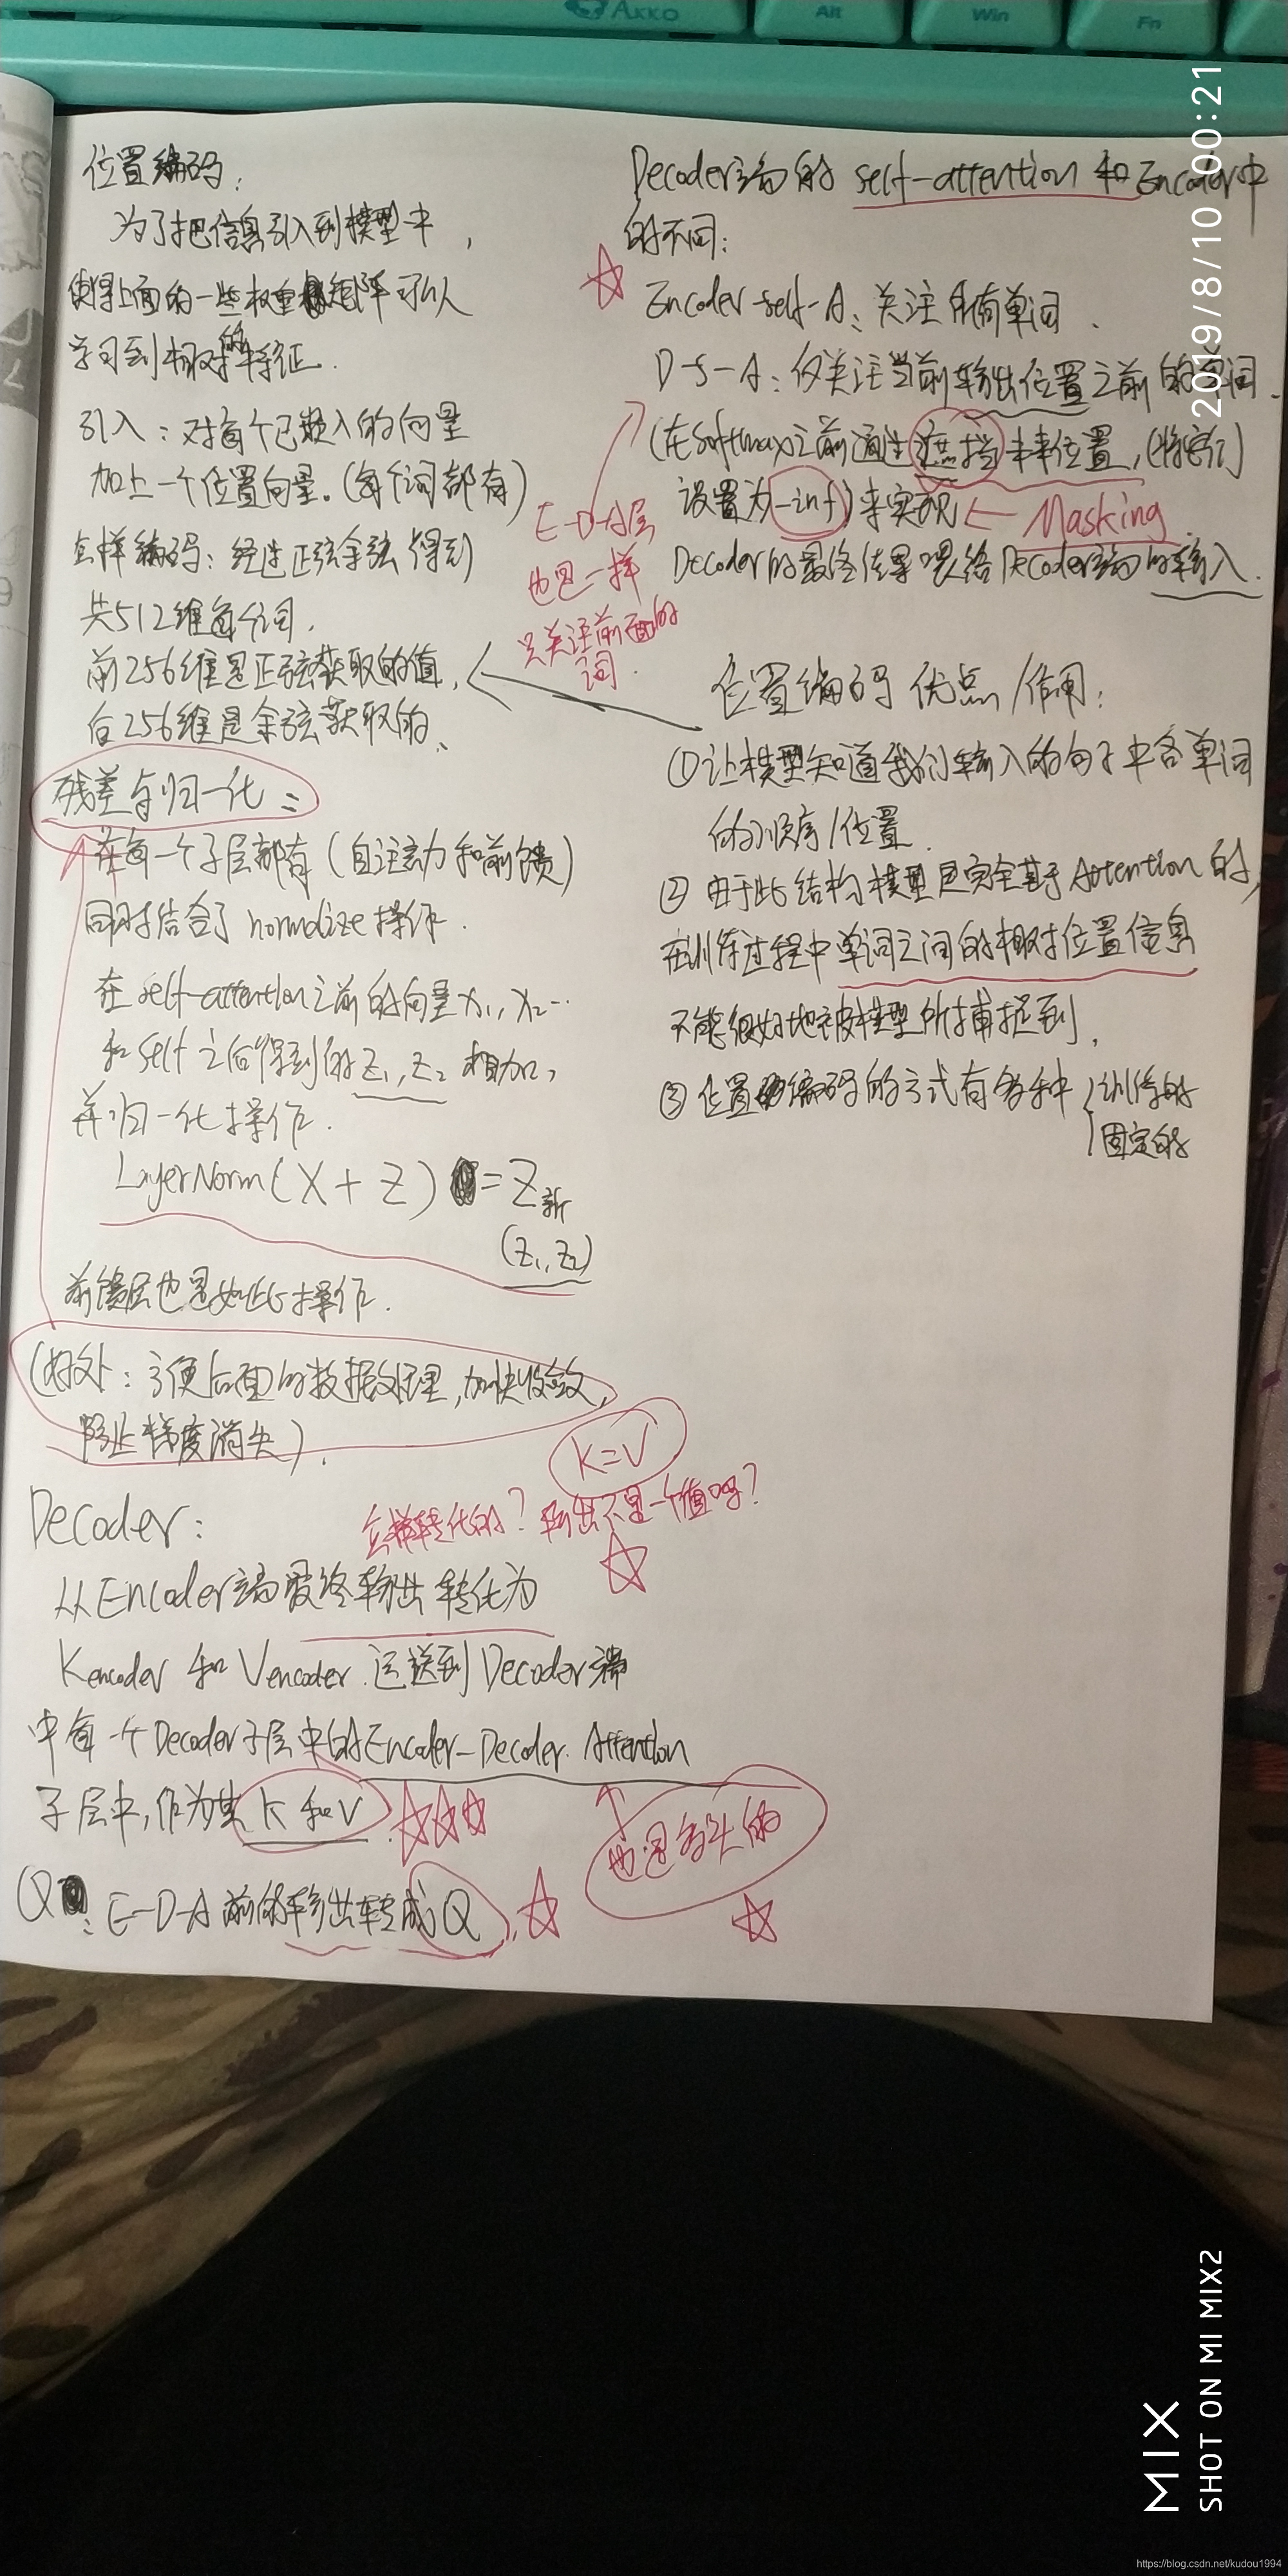 AKKO
Alt
Win
Fn
2019/8/10 00:21
位置编码：
为了把信息引入到模型中，
使得上面的一些权重矩阵可以
学习到相对的特征.
引入：对每个已嵌入的向量
加上一个位置向量。(每个词都有)
怎样编码：经过正弦余弦得到
共512维每个词.
前256维是正弦获取的值，
后256维是余弦获取的、
残差与归一化：
在每一个子层都有（自注意力和前馈）
同时结合了 normalize 操作.
在 self-attention之前的向量 X₁, X₂…
和self之后得到的 Z₁, Z₂ 相加，
并归一化操作.
LayerNorm(X + Z) = Z新
(Z₁, Z₂)
前馈层也是如此操作.
(好处：方便后面的数据处理，加快收敛，
防止梯度消失).
K=V
Decoder:
怎样转化的？输出不是一个值吗？
从Encoder端最终输出转化为
Kencoder 和 Vencoder.运送到Decoder端
中每一个Decoder子层中的Encoder-Decoder. Attention
子层中，作为其 K 和 V.
也是多头的
Q: E-D-A 前的输出转成Q.
Decoder端的 self-attention 和 Encoder中
的不同：
Encoder-self-A：关注所有单词.
D-S-A：仅关注当前输出位置之前的单词.
(在softmax之前通过遮挡未来位置，(将它们
设置为-inf)来实现 ← Masking
E-D-A层
也是一样
只关注前面的
词.
Decoder的最终结果喂给Decoder端的输入.
位置编码 优点/作用：
①让模型知道我们输入的句子中各单词
的顺序/位置.
② 由于此结构模型是完全基于Attention的，
在训练过程中单词之间的相对位置信息
不能很好地被模型所捕捉到.
③ 位置编码的方式有多种 { 训练的
固定的
MIX
SHOT ON MI MIX2
https://blog.csdn.net/kudou1994